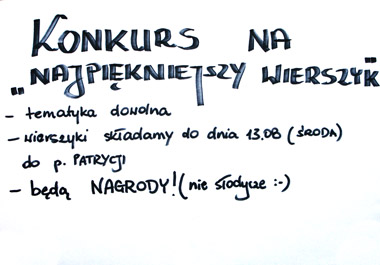 KONKURS NA
„NAJPIĘKNIEJSZY WIERSZYK”
- tematyka dowolna
- wierszyki składamy do dnia 13.08 (ŚRODA)
do p. PATRYCJI
- będą NAGRODY! (nie słodycze :-)